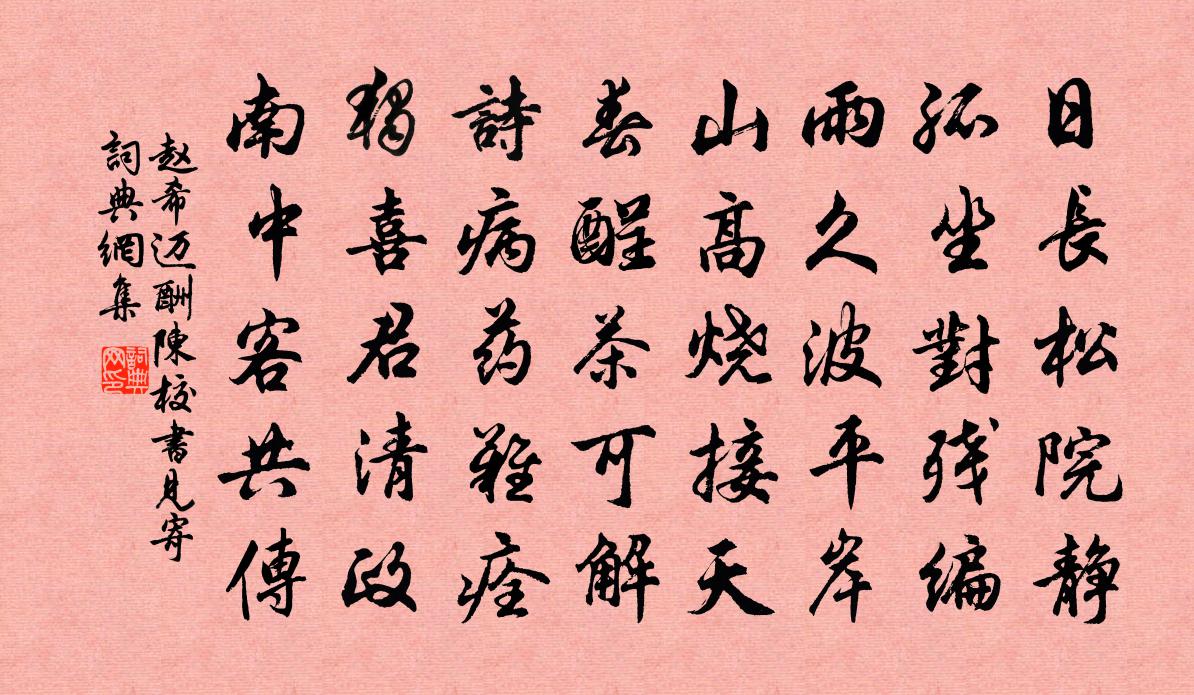 日長松院静
孤坐對残编
雨久波平岸
山高烧接天
春醒茶可解
詩病药難痊
獨喜君清政
南中客共傳
赵希迈酬陳校書見寄
詞典網集
詞典